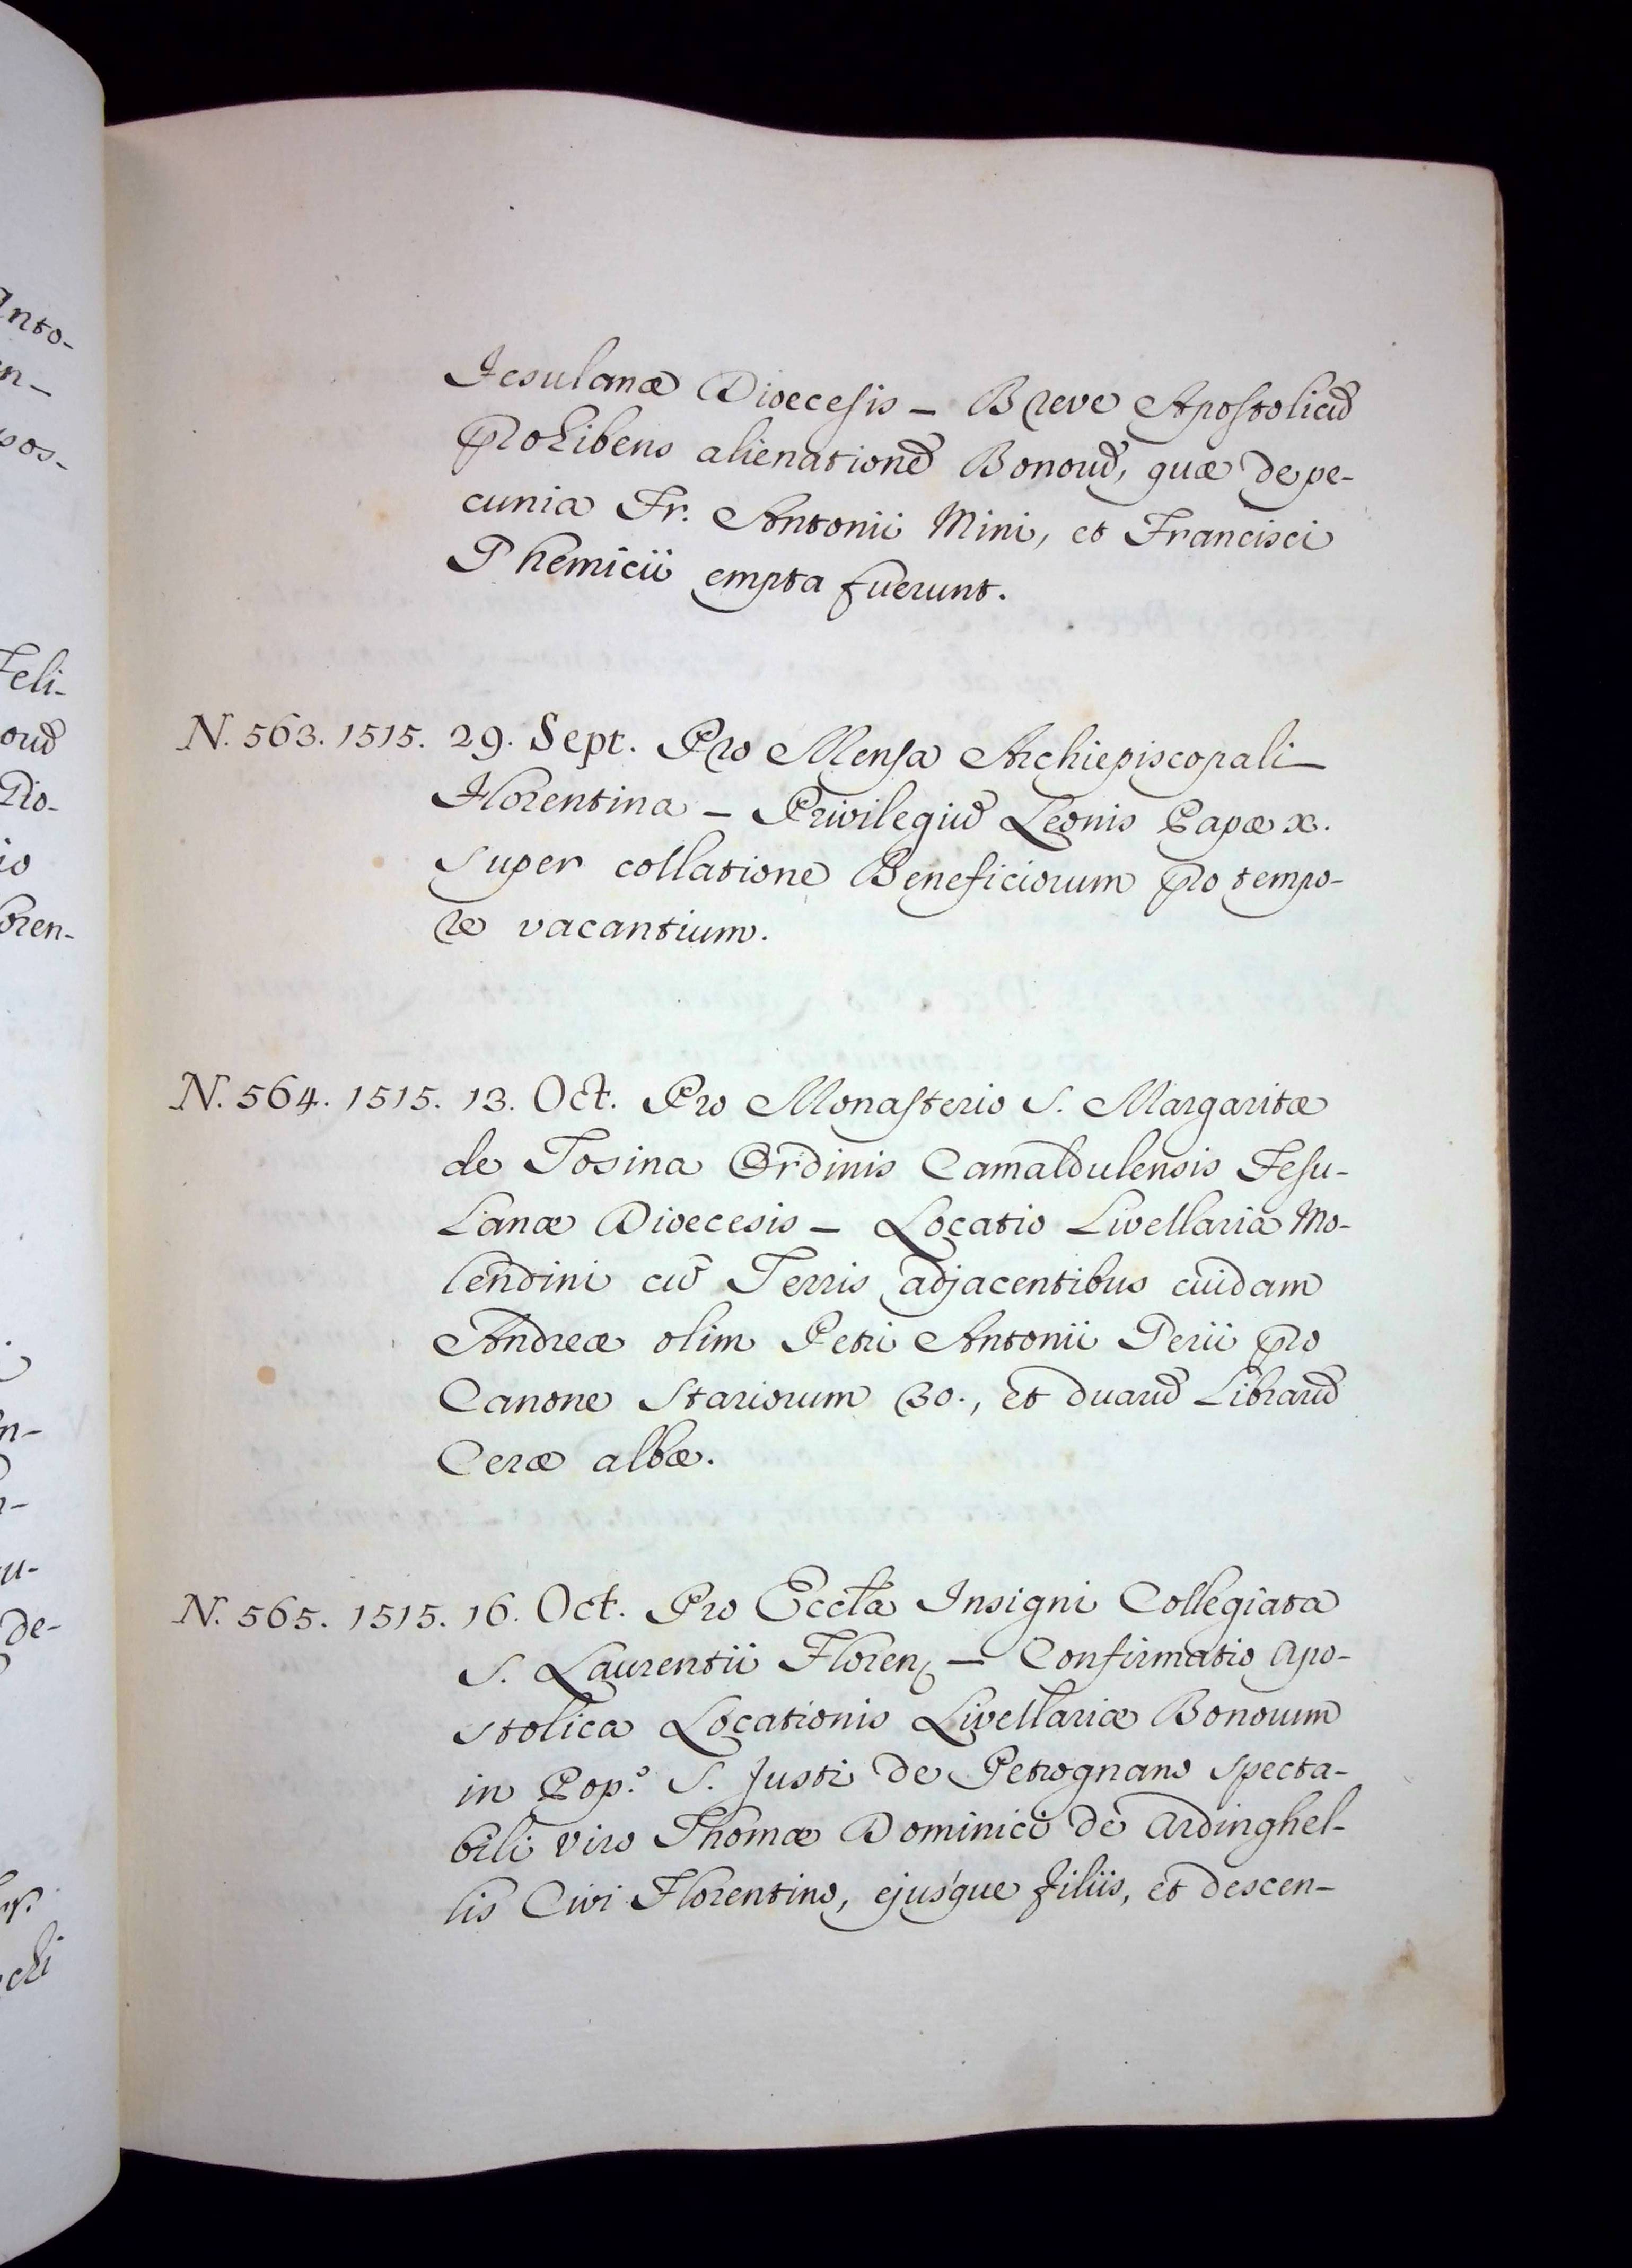 Anto-
n-
pos-
Feli-
Dio-
io
oren-
n-
u-
de-
chi
Fesulanæ Diœcesis – Breve Apostolicũ
prohibens alienationẽ Bonorũ, quæ de pe-
cunia Fr. Antonii Mini, et Francisci
Phemicii empta fuerunt.
N. 563. 1515. 29. Sept. Pro Mensa Archiepiscopali
Florentina – Privilegiũ Leonis Papæ X.
super collatione Beneficiorum pro tempo-
re vacantium.
N. 564. 1515. 13. Oct. Pro Monasterio S. Margaritæ
de Tosina Ordinis Camaldulensis Fesu-
lanæ Diœcesis – Locatio Livellaria Mo-
lendini cũ Terris adjacentibus cuidam
Andreæ olim Petri Antonii Perii pro
Canone Stariorum 30., et duarũ Librarũ
Ceræ albæ.
N. 565. 1515. 16. Oct. Pro Eccl̃a Insigni Collegiata
S. Laurentii Floren. – Confirmatio Apo-
stolica Locationis Livellariæ Bonorum
in Pop.º S. Justi de Petrognano specta-
bili viro Thomæ Dominici de Ardinghel-
lis Civi Florentino, ejusque filiis, et descen-